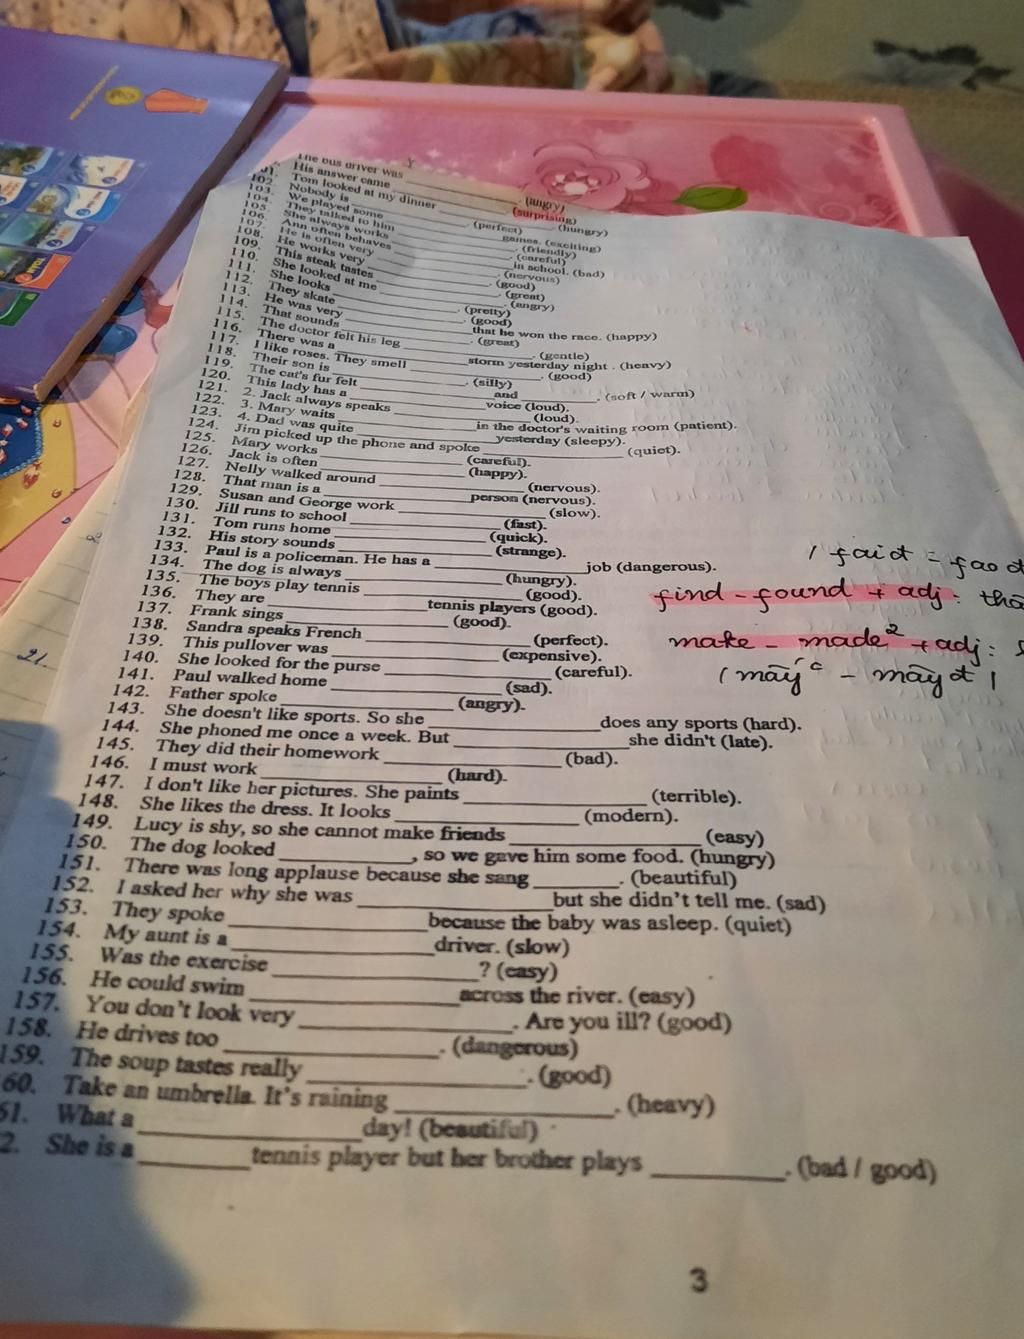 The bus driver was ____. (angry)
01. His answer came ____. (surprising)
102. Tom looked at my dinner ____. (hungry)
103. Nobody is ____. (perfect)
104. We played some ____ games. (exciting)
105. They talked to him ____. (friendly)
106. She always works ____. (careful)
107. Ann often behaves ____ in school. (bad)
108. He is often very ____. (nervous)
109. He works very ____. (good)
110. This steak tastes ____. (great)
111. She looked at me ____. (angry)
112. She looks ____. (pretty)
113. They skate ____. (good)
114. He was very ____ that he won the race. (happy)
115. That sounds ____. (great)
116. The doctor felt his leg ____. (gentle)
117. There was a ____ storm yesterday night . (heavy)
118. I like roses. They smell ____. (good)
119. Their son is ____. (silly)
120. The cat's fur felt ____ and ____. (soft / warm)
121. This lady has a ____ voice (loud).
122. 2. Jack always speaks ____ (loud).
123. 3. Mary waits ____ in the doctor's waiting room (patient).
124. 4. Dad was quite ____ yesterday (sleepy).
125. Jim picked up the phone and spoke ____ (quiet).
126. Mary works ____ (careful).
127. Jack is often ____ (happy).
128. Nelly walked around ____ (nervous).
129. That man is a ____ person (nervous).
130. Susan and George work ____ (slow).
131. Jill runs to school ____ (fast).
132. Tom runs home ____ (quick).
133. His story sounds ____ (strange).
134. Paul is a policeman. He has a ____ job (dangerous).
135. The dog is always ____ (hungry).
136. The boys play tennis ____ (good).
137. They are ____ tennis players (good).
138. Frank sings ____ (good).
139. Sandra speaks French ____ (perfect).
140. This pullover was ____ (expensive).
141. She looked for the purse ____ (careful).
142. Paul walked home ____ (sad).
143. Father spoke ____ (angry).
144. She doesn't like sports. So she ____ does any sports (hard).
145. She phoned me once a week. But ____ she didn't (late).
146. They did their homework ____ (bad).
147. I must work ____ (hard).
148. I don't like her pictures. She paints ____ (terrible).
149. She likes the dress. It looks ____ (modern).
150. Lucy is shy, so she cannot make friends ____ (easy)
151. The dog looked ____, so we gave him some food. (hungry)
152. There was long applause because she sang ____. (beautiful)
153. I asked her why she was ____ but she didn't tell me. (sad)
154. They spoke ____ because the baby was asleep. (quiet)
155. My aunt is a ____ driver. (slow)
156. Was the exercise ____? (easy)
157. He could swim ____ across the river. (easy)
158. You don't look very ____. Are you ill? (good)
159. He drives too ____. (dangerous)
60. The soup tastes really ____. (good)
61. Take an umbrella. It's raining ____. (heavy)
2. What a ____ day! (beautiful)
She is a ____ tennis player but her brother plays ____. (bad / good)
find - found + adj:
make - made² + adj:
21.
3